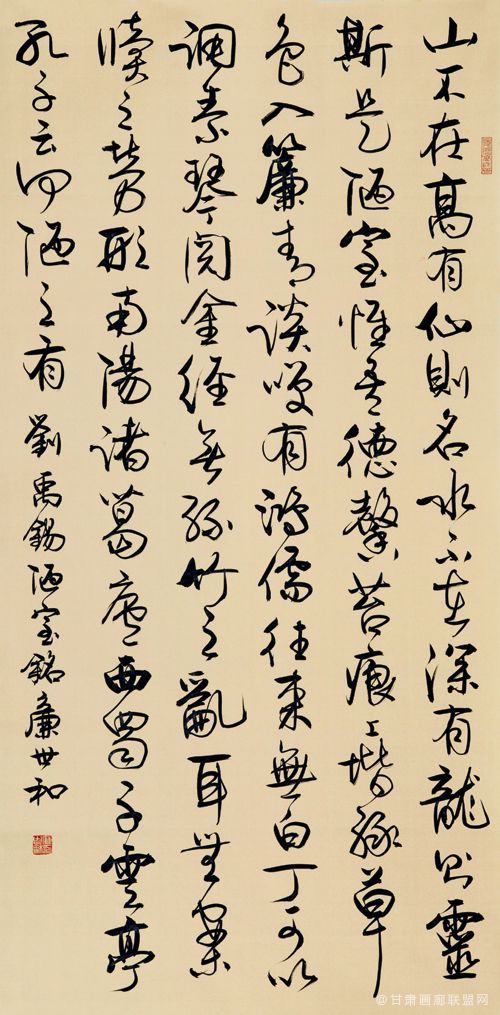 山不在高有仙則名水不在深有龍則靈
斯是陋室惟吾德馨苔痕上堦綠草
色入簾青談笑有鴻儒往來無白丁可以
調素琴閱金經無絲竹之亂耳無案
牘之勞形南陽諸葛廬西蜀子雲亭
孔子云何陋之有 劉禹錫陋室銘 廉世和
@甘肃画廊联盟网